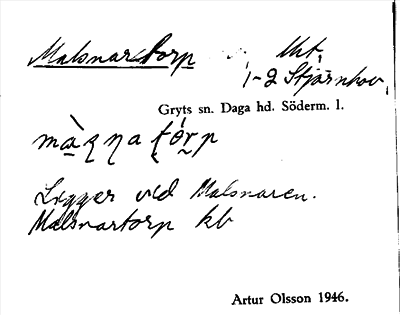 Malsnartorp Uht.
1-2 Stjärnhov.
Gryts sn. Daga hd. Söderm. l.
Ligger vid Malsnaren.
Malsnartorp kb
Artur Olsson 1946.